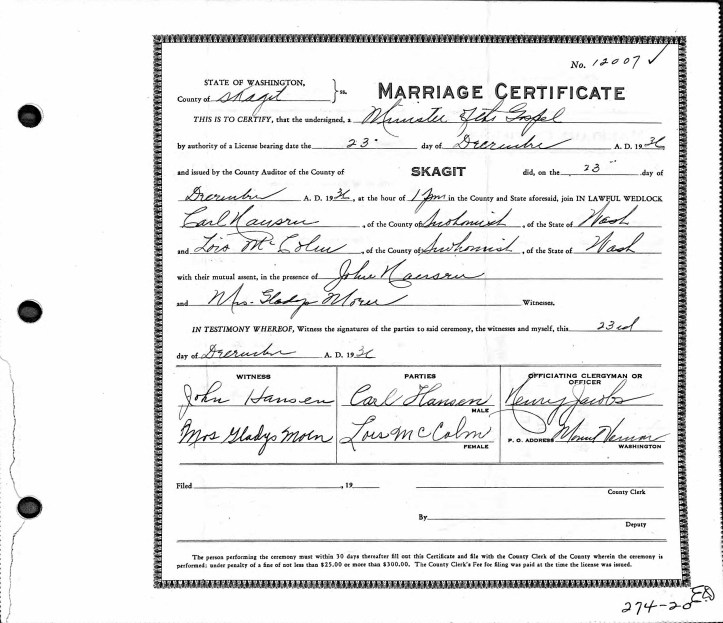 No. 12007 ✓
STATE OF WASHINGTON,
County of Skagit } ss.
MARRIAGE CERTIFICATE
THIS IS TO CERTIFY, that the undersigned, a Minister of the Gospel
by authority of a License bearing the date the 23 day of December A. D. 1936
and issued by the County Auditor of the County of SKAGIT did, on the 23 day of
December A. D. 1936, at the hour of 1 pm in the County and State aforesaid, join IN LAWFUL WEDLOCK
Carl Hansen, of the County of Snohomish, of the State of Wash
and Lois McColm, of the County of Snohomish, of the State of Wash
with their mutual assent, in the presence of John Hansen
and Mrs. Gladys Moen Witnesses.
IN TESTIMONY WHEREOF, Witness the signatures of the parties to said ceremony, the witnesses and myself, this 23rd
day of December A. D. 1936
WITNESS PARTIES OFFICIATING CLERGYMAN OR OFFICER
John Hansen Carl Hansen MALE Henry Jacobs
Mrs Gladys Moen Lois McColm FEMALE P. O. ADDRESS Mount Vernon WASHINGTON
Filed , 19
County Clerk
By
Deputy
The person performing the ceremony must within 30 days thereafter fill out this Certificate and file with the County Clerk of the County wherein the ceremony is
performed; under penalty of a fine of not less than $25.00 or more than $300.00. The County Clerk's Fee for filing was paid at the time the license was issued.
274-20